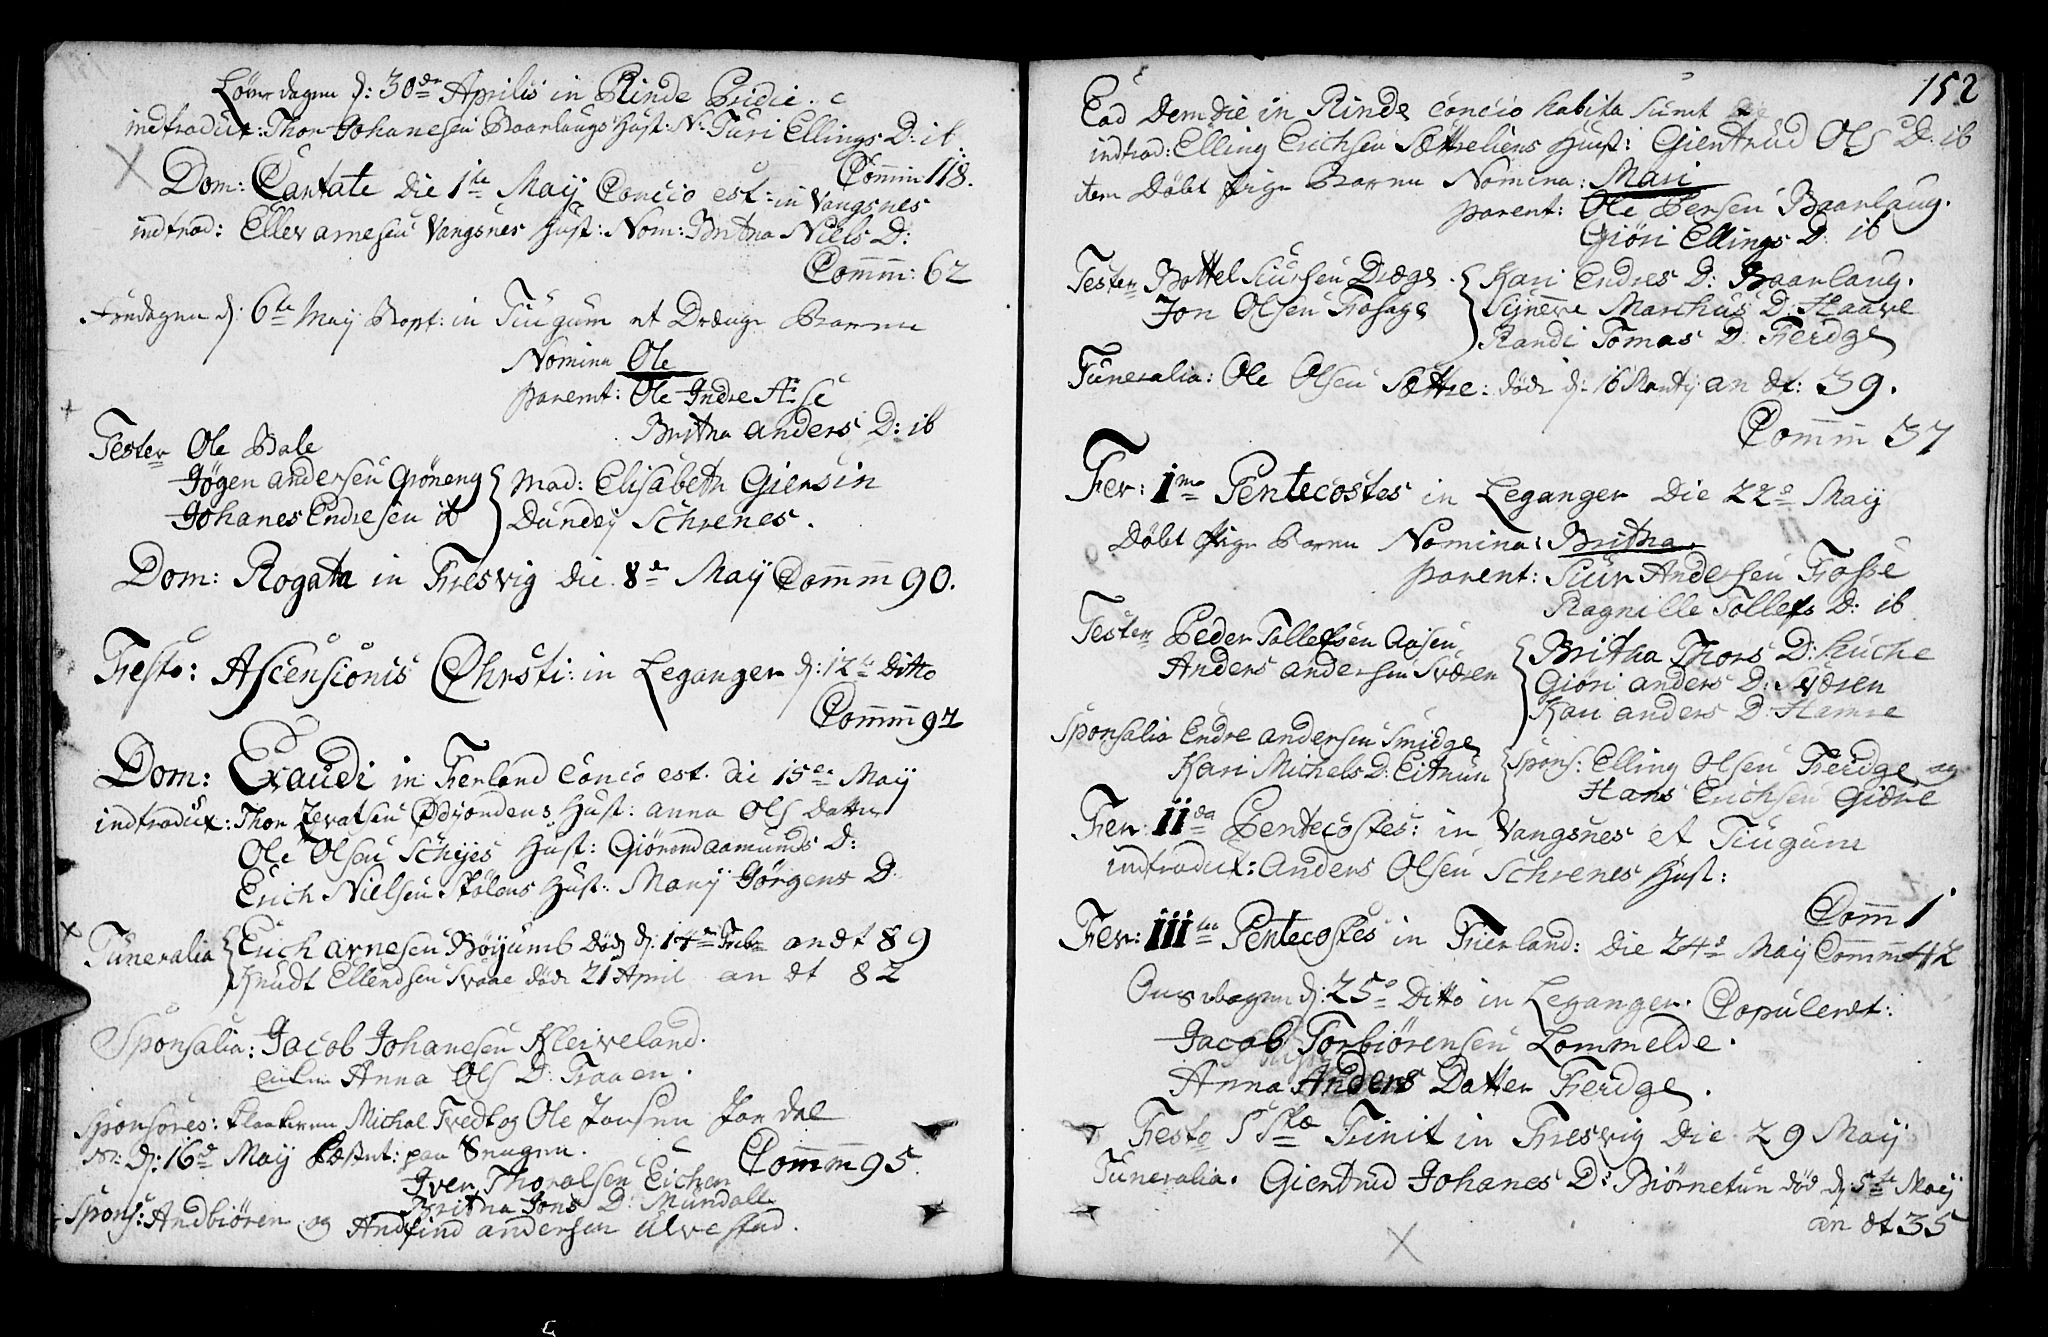 Løverdagen d: 30de Aprilis in Rinde Pridie. c
indtroduct: Thor Johanesen Baarlaugs Hust: N: Turi Ellings D: ib.
Comm 118.
Dom: Cantate die 1te Maij Concio est: in Vangsnes
indtrod: Ellev arnesen Vangsnes Hust: Nom: Britha Niels D:
Comm: 62
Fredagen d: 6te Maij Bapt: in Tiugum et Drænge Barn
Nomine Ole
parent: Ole Indre Aase
Britha anders D: ib
Tester Ole Bale
Jøgen andersen Grøneng
Johanes Endresen ib
Mad: Elisabeth Giersin
Dundej Schrenes.
Dom: Rogate in Fresvig die 8de Maij Comm 90.
Festo: Ascensionis Christi: in Leganger d: 12te Ditto
Comm 92
Dom: Exaudi in Fierland Concio est. die 15de Maij
indtroduct: Thor Ødsiordens Hust: anna Ols datter
Ole Olsen Schejes Hust: Giørond aamunds D:
Erich Nielsen Hust: Marij Jørgens D
Funeralia Erich arnesen Bøjumb død d: 14de Febr andt 89
Knudt Ellendsen Svaae døde 21 April an dt 82
Sponsalia: Jacob Johanesen Kleiveland.
Anna Ols D: Traaen.
Sponsores: Klockeren Michal Tvedt og Ole Jonsen
d: 16de Maij Fæstet: paa Snugen.
Comm 95.
Iver Thoralsen Eichen
Britha Jons D: Mundall
Spons: Andbiøren og Andfind andersen Ulvestad.
152
Eod Dem die in Rinde concio habita sunt
indtrod: Elling Erichsen Sætreliens Hust: Giertrud Ols D: ib
item Døbt Pige Barn Nomina: Mari
parent: Ole Persen Baarlaug.
Giøri Ellings D: ib
Tester Bottel Siursen Dræge.
Jon Olsen Fosage
Kari Endres D: Baarlaug.
Sijneve Marchus D: Haave
Randi Tomas D: Ferdge
Funeralia: Ole Olsen Sættre: døde d: 16 Martij an dt: 39.
Comm 37
Fer: Ime Pentecostes in Leganger Die 22de Maij
Døbt Pige Barn Nomina: Britha.
parent: Siur Andersen Fosse
Ragnille Tollefs D: ib
Tester Peder Tollefsen Aasen
Anders andersen Sværen
Britha Thors D: Kuche
Giøri anders D: Sværen
Kari anders D: Hamre
Sponsalia Endre andersen Smidge
Kari Michels D: Eitrun
Spons: Elling Olsen Ferdge og
Hans Erichsen Giære
Fer: IIda Pentecostes: in Vangsnes et Tiugum
indtroduct: Anders Olsen Schrenes Hust:
Comm 1
Fer: IIItia Pentecostes in Fierland: die 24de Maij Comm 42
Onsdagen d: 25de Ditto in Leganger. Copuleret:
Jacob Torbiørensen Lommelde.
Anna Anders Datter Ferdge.
Festo SStæ Trinit in Fresvig Die 29 Maij
Funeralia. Giertrud Johanes D: Biørnetun død d: 5te Maij
an dt 35